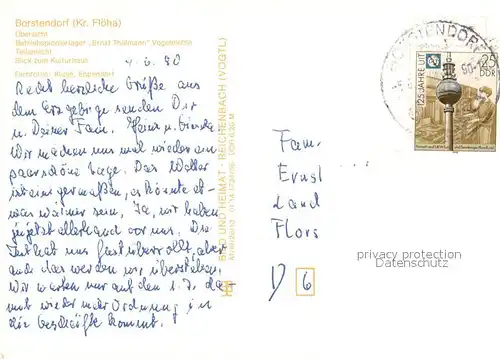 Borstendorf (Kr. Flöha)
Übersicht
Betriebsferienlager "Ernst Thälmann" Vogelmühle
Teilansicht
Blick zum Kulturhaus
4. 6. 90
Recht herzliche Grüße aus
dem Erzgebirge senden Dir
u. Deiner Fam. Heinz u.
Wir machen uns mal wieder ein
paar schöne Tage. Das Wetter
ist einigermaßen, es könnte et-
was wärmer sein. Ja, wir haben
jetzt allerhand vor uns. Die
Zeit hat uns fast überrollt, aber
auch das werden wir überstehen.
Wir warten nur auf den 1. 7. da-
mit wieder mehr Ordnung in
die Geschäfte kommt.
BILD UND HEIMAT · REICHENBACH (VOGTL)
Fam.
Ernst
Land
Flors
D 6
BORSTENDORF
125 JAHRE UIT
25
DDR
privacy protection
Datenschutz